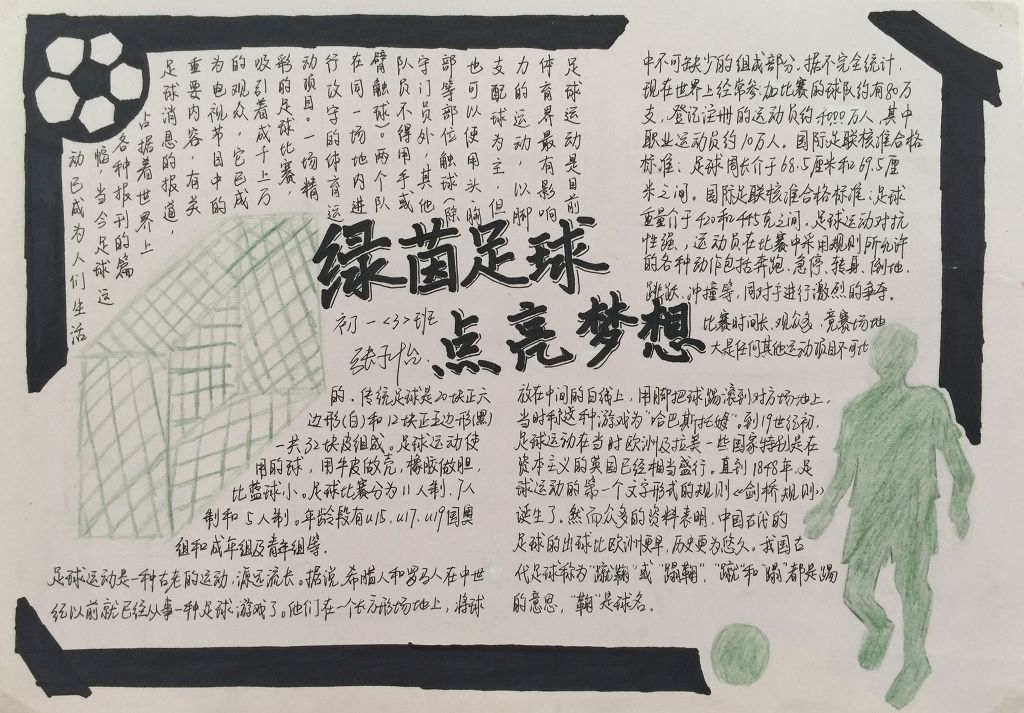 绿茵足球
点亮梦想
初一<3>班
足球运动是目前
体育界最有影响
力的运动，以脚
支配球为主，但
也可以使用头、胸
部等部位触球(除
守门员外，其他
队员不得用手或
臂触球)。两个队
在同一场地内进
行攻守的体育运
动项目。一场精
彩的足球比赛，
吸引着成千上万
的观众，它已成
为电视节目中的
重要内容，有关
足球消息的报道，
占据着世界上
各种报刊的篇
幅，当今足球运
动已成为人们生活
中不可缺少的组成部分。据不完全统计，
现在世界上经常参加比赛的球队约有80万
支，登记注册的运动员约4000万人，其中
职业运动员约10万人。国际足联核准合格
标准：足球周长介于68.5厘米和69.5厘
米之间。国际足联核准合格标准：足球
重量介于420和445克之间。足球运动对抗
性强，运动员在比赛中采用规则所允许
的各种动作包括奔跑、急停、转身、倒地、
跳跃、冲撞等，同对手进行激烈的争夺。
比赛时间长、观众多、竞赛场地
大是任何其他运动项目不可比
的。传统足球是20块正六
边形(白)和12块正五边形(黑)
一共32块皮组成。足球运动使
用的球，用牛皮做壳，橡胶做胆，
比蓝球小。足球比赛分为11人制、7人
制和5人制。年龄段有u15.u17.u19国奥
组和成年组及青年组等.
足球运动是一种古老的运动，源远流长。据说，希腊人和罗马人在中世
纪以前就已经从事一种足球游戏了。他们在一个长方形场地上，将球
放在中间的白线上，用脚把球踢滚到对方场地上，
当时称这种游戏为"哈巴斯托姆"。到19世纪初，
足球运动在当时欧洲及拉美一些国家特别是在
资本主义的英国已经相当盛行。直到1848年，足
球运动的第一个文字形式的规则《剑桥规则》
诞生了。然而众多的资料表明，中国古代的
足球的出球比欧洲更早，历史更为悠久。我国古
代足球称为"蹴鞠"或"蹋鞠"，"蹴"和"蹋"都是踢
的意思，"鞠"是球名。